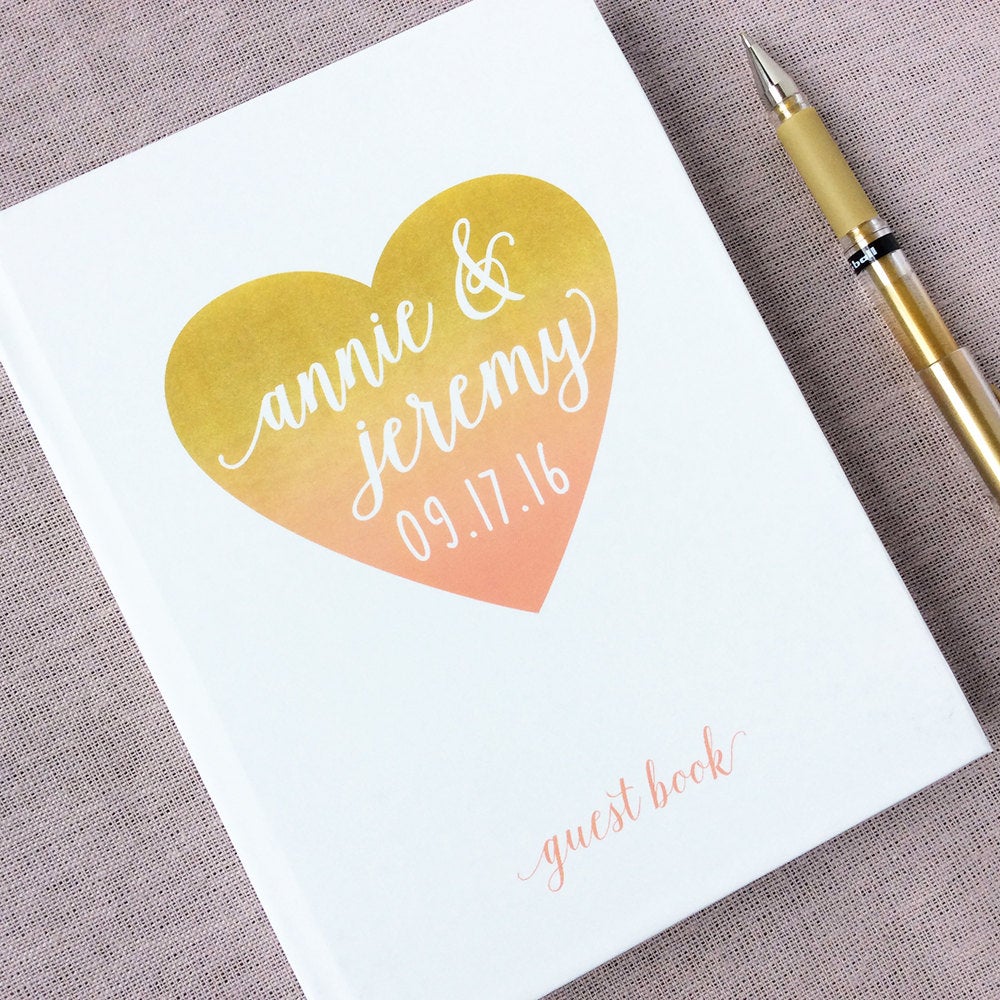 annie &
jeremy
09.17.16
guest book
ball